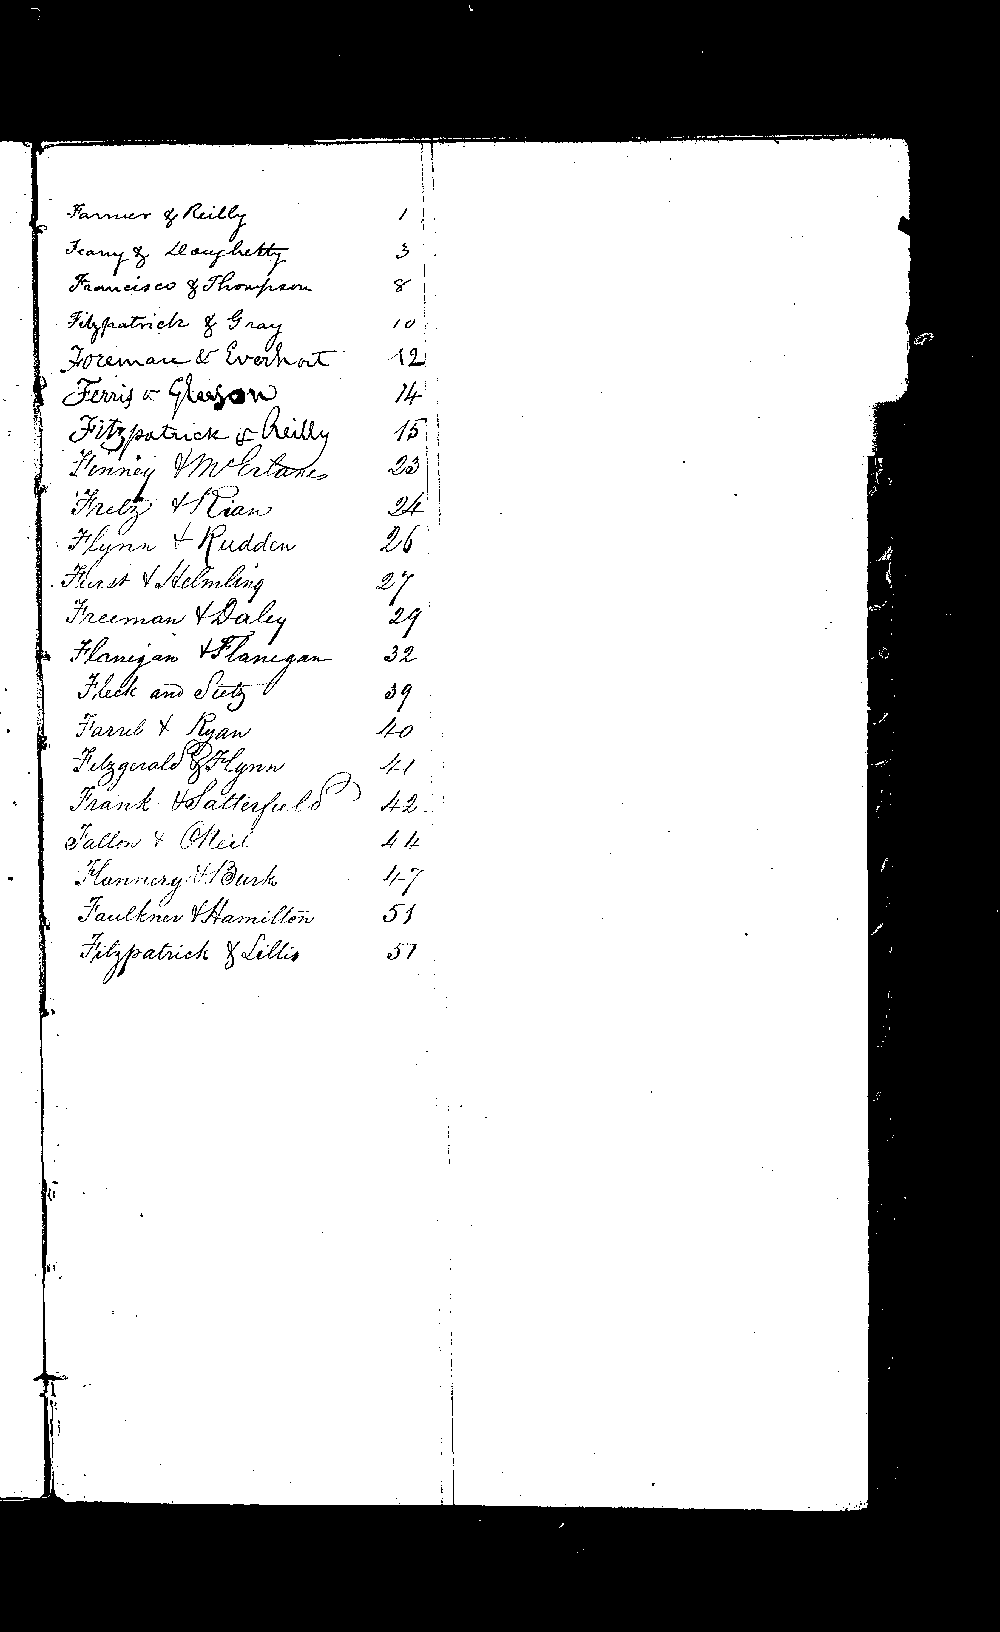 Farmer & Reilly 1
Feany & Dougherty 3
Francisco & Thompson 8
Fitzpatrick & Gray 10
Foreman & Everhart 12
Ferris & Gleason 14
Fitzpatrick & Reilly 15
Finney & McErlane 23
Fretz & Rian 24
Flynn & Rudden 26
Furst & Helmling 27
Freeman & Daley 29
Flanigan & Flanegan 32
Fleck and Seitz 39
Farrel & Ryan 40
Fitzgerald & Flynn 41
Frank & Satterfield 42
Fallon & ONeil 44
Flannery & Burk 47
Faulkner & Hamilton 51
Fitzpatrick & Lillis 51